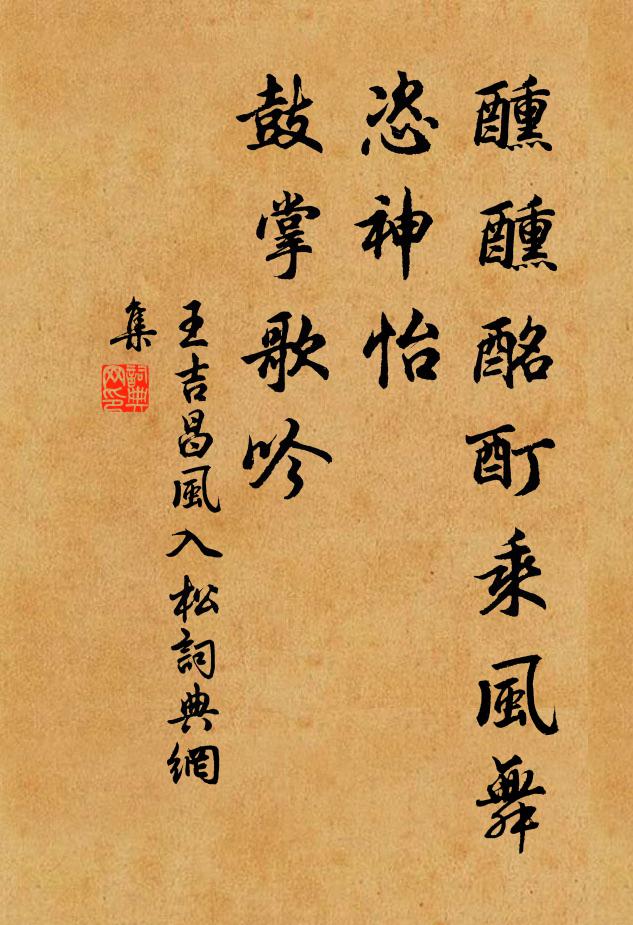 醺醺酩酊乘風舞
恣神怡
鼓掌歌吟
王吉昌風入松詞典網
集
詞典
网印